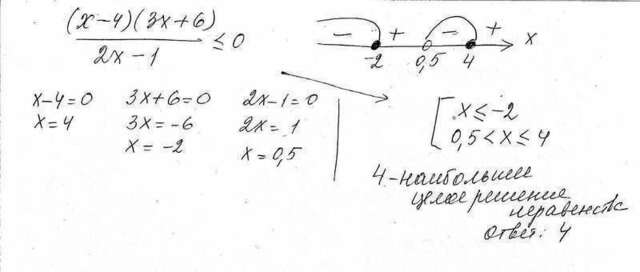 (x-4)(3x+6)
2x-1
≤ 0
- + - + x
-2 0,5 4
x-4=0 3x+6=0 2x-1=0
x=4 3x=-6 2x=1
x=-2 x=0,5
x≤-2
0,5<x≤4
4-наибольшее
целое решение
неравенств
Ответ: 4